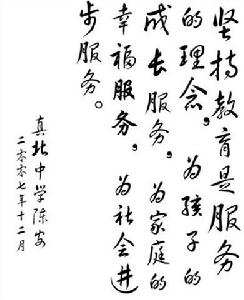 坚持教育是服务
的理念，为孩子的
成长服务，为家庭的
幸福服务，为社会进
步服务。
真北中学陈安
二零零七年十二月